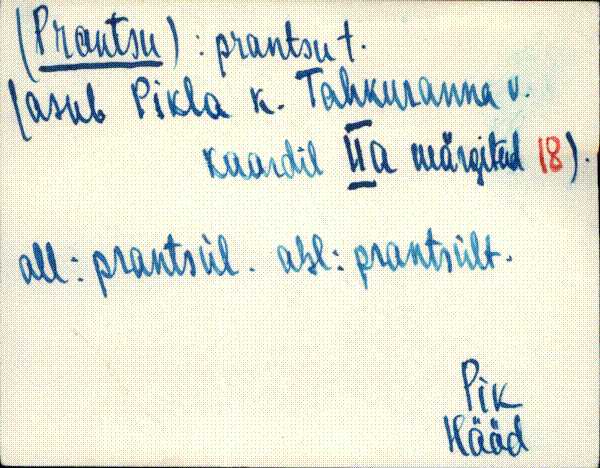 (Prantsu) : prantsu t.
(asub Pikla k. Tahkuranna v.
kaardil IIa märgitud 18).
all: prantsül. abl: prantsült.
Pik
Hääd